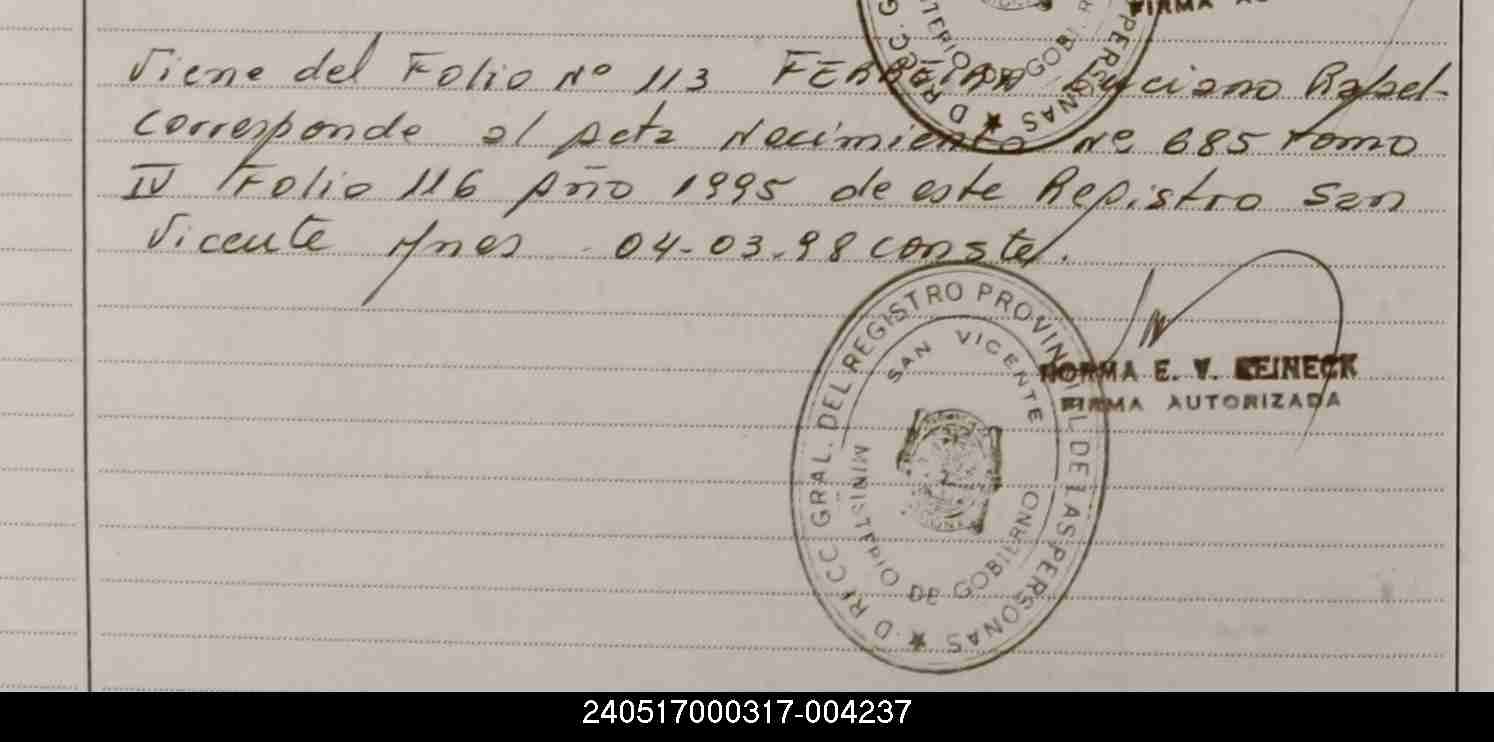 FIRMA
Viene del Folio Nº 113 FERREIRA Luciano Rafael-
corresponde al Acta Nacimiento Nº 685 Tomo
IV Folio 116 Año 1995 de este Registro San
Vicente Mnes 04-03-98 conste.
D RECC GRAL. DEL REGISTRO PROVINCIAL DE LAS PERSONAS ★
SAN VICENTE
MINISTERIO DE GOBIERNO
NORMA E. V. REINECK
FIRMA AUTORIZADA
240517000317-004237